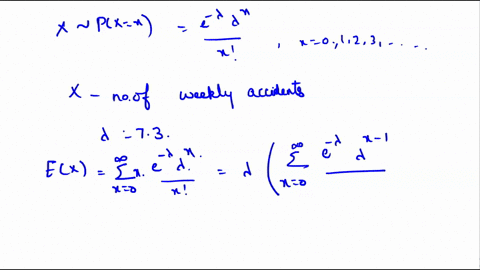 X ~ P(X=x) = e^{-λ} λ^x / x! , x=0,1,2,3,.....
X - no.of weekly accidents
λ = 7.3.
E(X) = ∑_{x=0}^{∞} x. e^{-λ} λ^x. / x! = λ ( ∑_{x=0}^{∞} e^{-λ} λ^{x-1} /